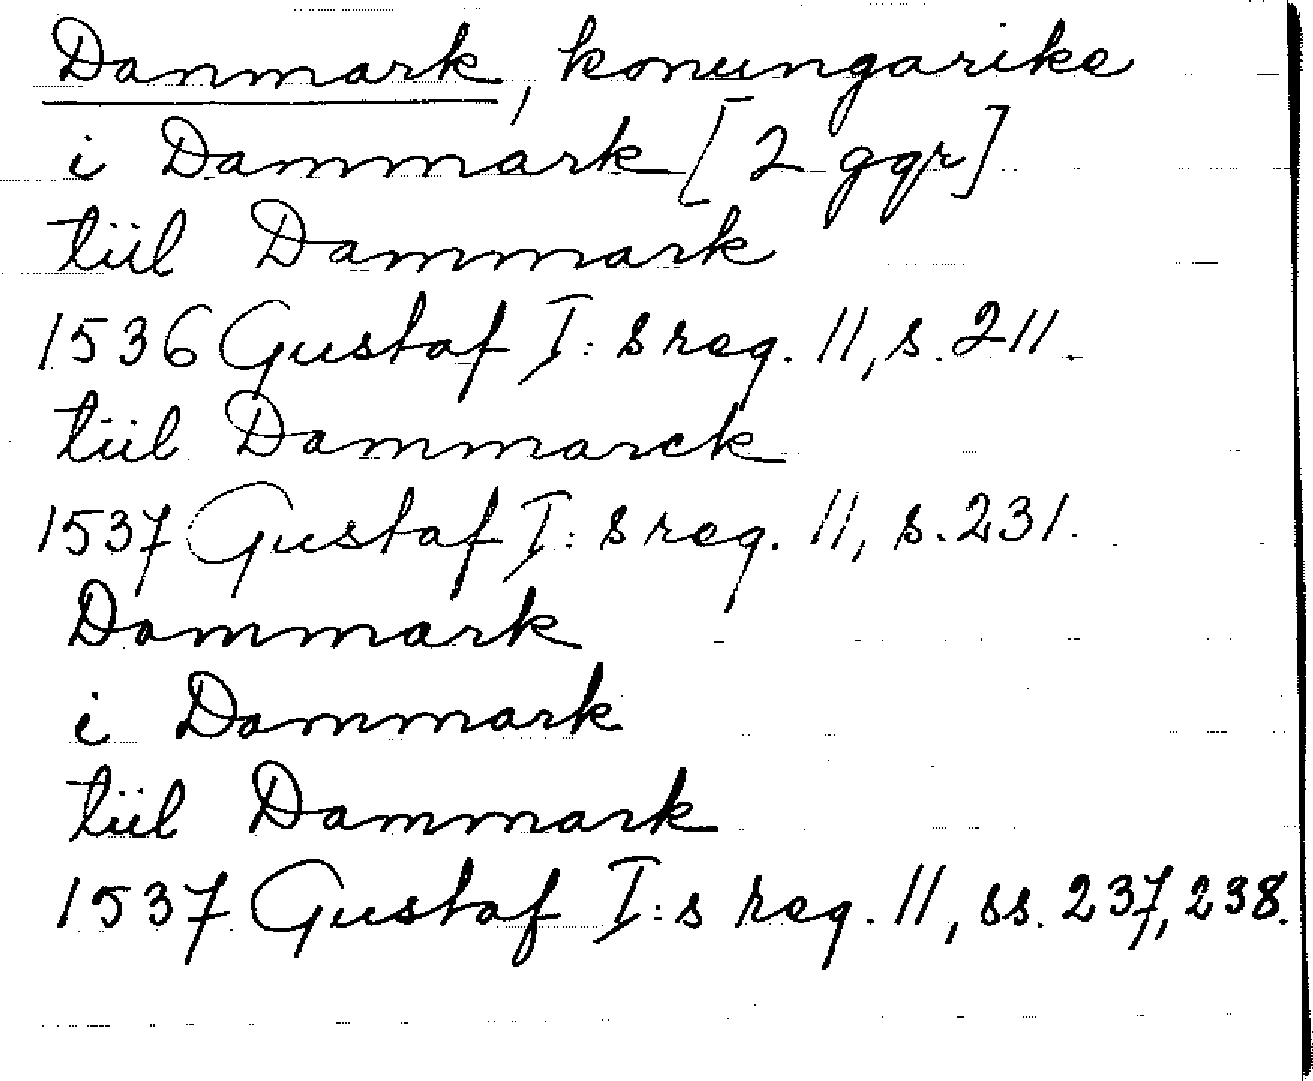 Danmark, konungarike
i Dammark [2 ggr]
tiil Dammark
1536 Gustaf I:s reg. 11, s. 211.
tiil Dammarck
1537 Gustaf I:s reg. 11, s. 231.
Dammark
i Dammark
tiil Dammark
1537 Gustaf I:s reg. 11, ss. 237, 238.